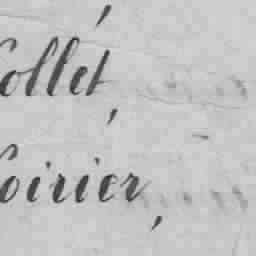 ollet,
oirier,